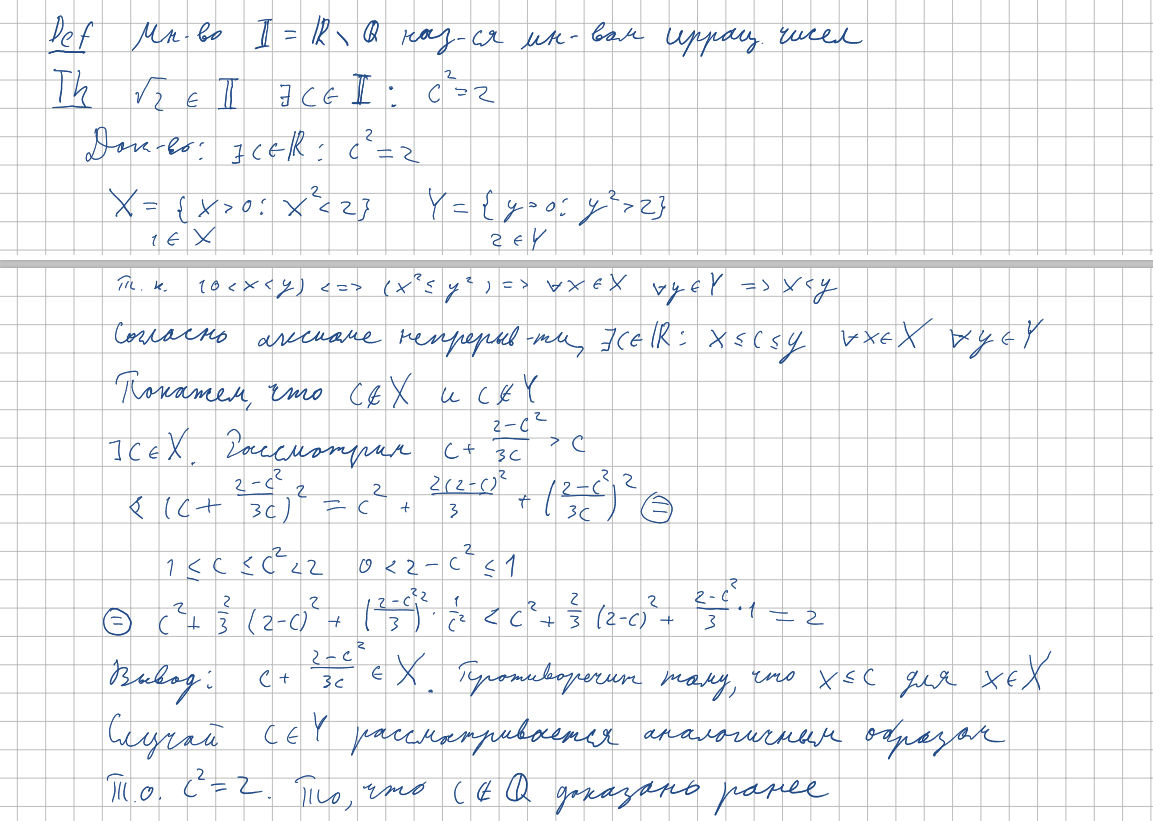 Def Мн-во 𝕀 = ℝ \ ℚ наз-ся мн-вом иррац. чисел
Th √2 ∈ 𝕀 ∃ C ∈ 𝕀 : C² = 2
Док-во: ∃ C ∈ ℝ : C² = 2
X = { x > 0 : x² < 2 } Y = { y > 0 : y² > 2 }
1 ∈ X 2 ∈ Y
Т. к. (0 < x < y) <=> (x² ≤ y²) => ∀x ∈ X ∀y ∈ Y => x < y
Согласно аксиоме непрерыв-ти, ∃ C ∈ ℝ : x ≤ C ≤ y ∀x ∈ X ∀y ∈ Y
Покажем, что C ∉ X и C ∉ Y
∃ C ∈ X. Рассмотрим C + (2-C²)/3C > C
(C + (2-C²)/3C)² = C² + 2(2-C)²/3 + ((2-C²)/3C)² ⊜
1 ≤ C ≤ C² < 2 0 < 2 - C² ≤ 1
⊜ C² + 2/3 (2-C)² + ((2-C²)/3)² · 1/C² < C² + 2/3 (2-C)² + (2-C²)/3 · 1 = 2
Вывод: C + (2-C²)/3C ∈ X. Противоречит тому, что x ≤ C для x ∈ X
Случай C ∈ Y рассматривается аналогичным образом
Т.о. C² = 2. То, что C ∉ ℚ доказано ранее